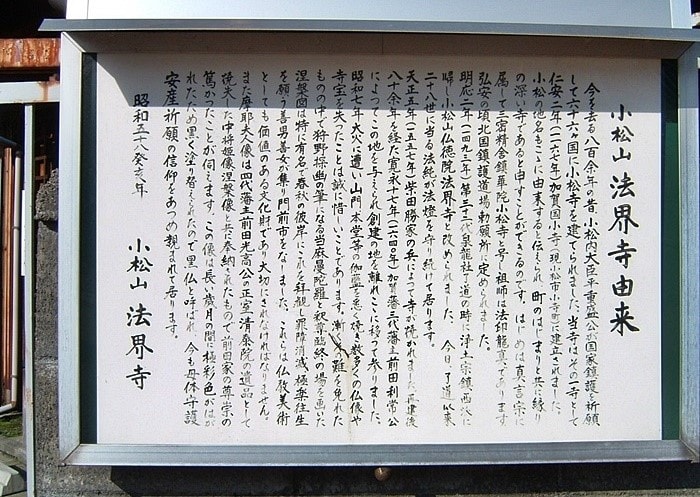 小松山 法界寺由来
今を去る八百余年の昔、小松内大臣平重盛公が国家鎮護を祈願
して六十六ヶ国に小松寺を建てられました。当寺はその一寺として
仁安二年(一一六七年)加賀国小寺(現小松市小寺町)に建立されました。
小松の地名もこゝに由来すると伝えられ、町のはじまりと共に縁り
の深い寺であると申すことができるのです。はじめは真言宗に
属して三密精舎鎮華院小松寺と号し祖師は法印龍真であります。
弘安の頃北国鎮護道場勅願所に定められました。
明応二年(一四九三年)第三十二代泉龍社了道の時に浄土宗鎮西派に
帰し小松山仏徳院法界寺と改められました。今日、了道以来
二十八世に当る法純が法燈を守り続けて居ります。
天正五年(一五七七年)柴田勝家の兵によって寺が焼かれました。再建後
八十余年を経た寛永十七年(一六四〇年)加賀藩三代藩主前田利常公
によってこの地を与えられ創建の地を離れこゝに移って参りました。
昭和七年大火に遭い山門本堂等の伽藍が悉く焼き数多くの仏像や
寺宝を失ったことは誠に惜いことであります。漸くその難を免れた
ものの中で狩野探幽の筆になる当麻曼陀羅と釈尊臨終の場を画いた
涅槃図は特に有名で春秋の彼岸にはこれを拜観し罪障消滅、極楽往生
を願う善男善女が集り門前市をなしました。これらは仏教美術
としても価値のある文化財であり大切にされなければなりません。
また摩耶夫人像は四代藩主前田光高公の正室清泰院の遺品として
焼失した中将姫像涅槃像と共に奉納されたもので前田家の尊崇の
篤かったことが伺えます。この像は長い歳月の間に極彩色がはが
れたため黒く塗り替えられたので黒仏と呼ばれ、今も母体守護
安産祈願の信仰をあつめ親まれて居ります。
昭和五十八癸亥年
小松山 法界寺